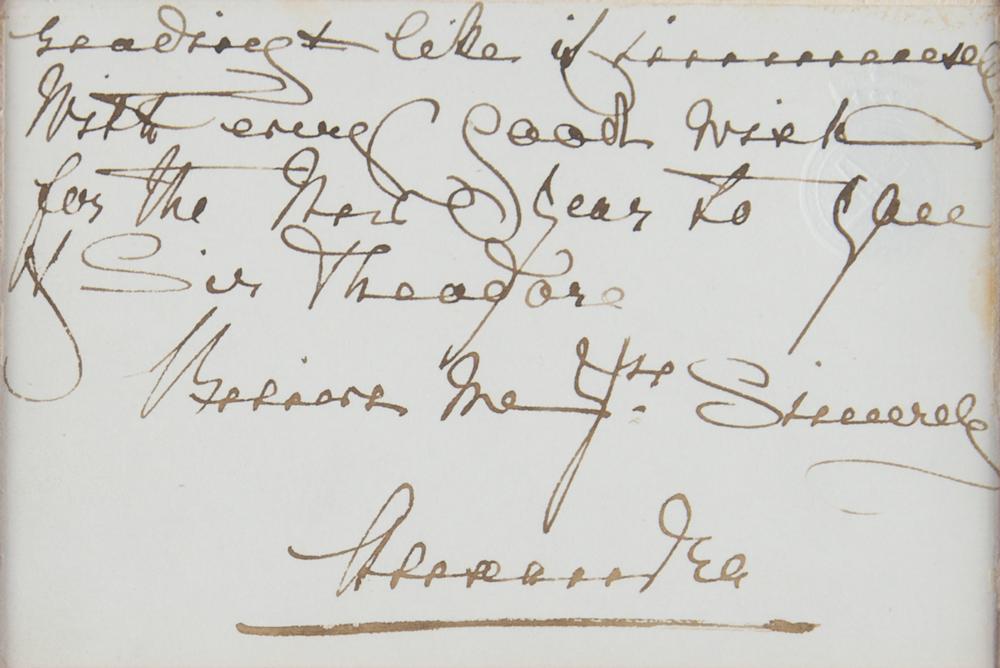 reading & like it immensely
With every good wish
for the New Year to you
& Sir Theodore
Believe me Yrs. Sincerely
Alexandra